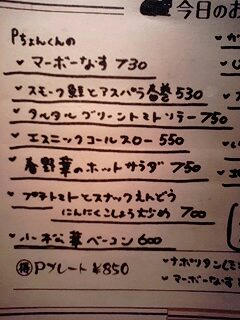 今日のお
Pちょんくんの
マーボーなす 730
スモーク鮭とアスパラ春巻 530
タルタルグリーントマトソテー 750
エスニックコールスロー 550
春野菜のホットサラダ 750
プチトマトとスナックえんどう
にんにくこしょう炒め 700
小松菜ベーコン 600
得 Pプレート ¥850
ナポリタン
マーボーなす